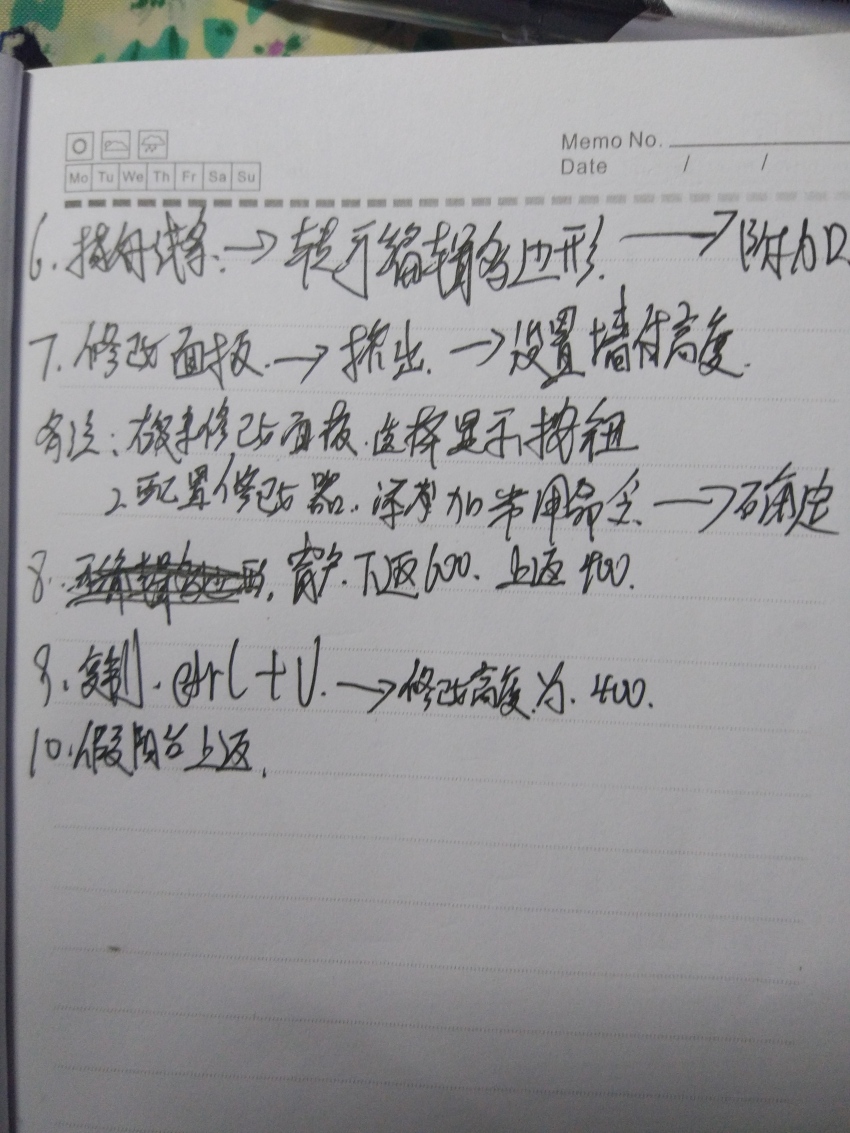 Memo No.
Date / /
Mo Tu We Th Fr Sa Su
6. 转可编辑多边形. → 附加
7. 修改面板. → 挤出. → 设置墙体高度.
备注: 修改面板. 选择显示按钮
2. 配置修改器. 添加常用命令 → 确定
8. 窗户. 下返600. 上返400.
9. 复制. ctrl+V. → 修改高度为. 400.
10. 假阳台上返.